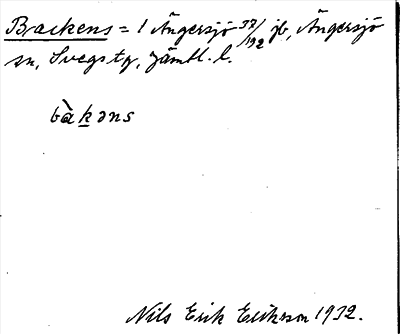 Brackens = 1 Ängersjö 37/192 jb, Ängersjö
sn, Svegs tg, Jämtl. l.
bàkəns
Nils Erik Erikson 1932.